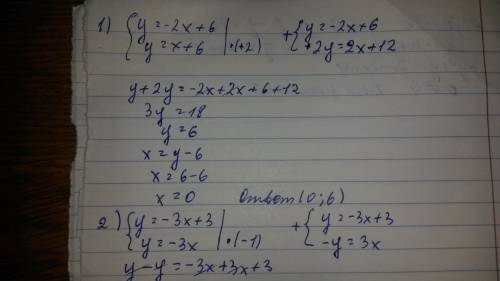 1) { y = -2x + 6 | + { y = -2x + 6
y = x + 6 | · (+2) +2y = 2x + 12
y + 2y = -2x + 2x + 6 + 12
3y = 18
y = 6
x = y - 6
x = 6 - 6
x = 0 Ответ (0; 6)
2) { y = -3x + 3 | + { y = -3x + 3
y = -3x | · (-1) -y = 3x
y - y = -3x + 3x + 3